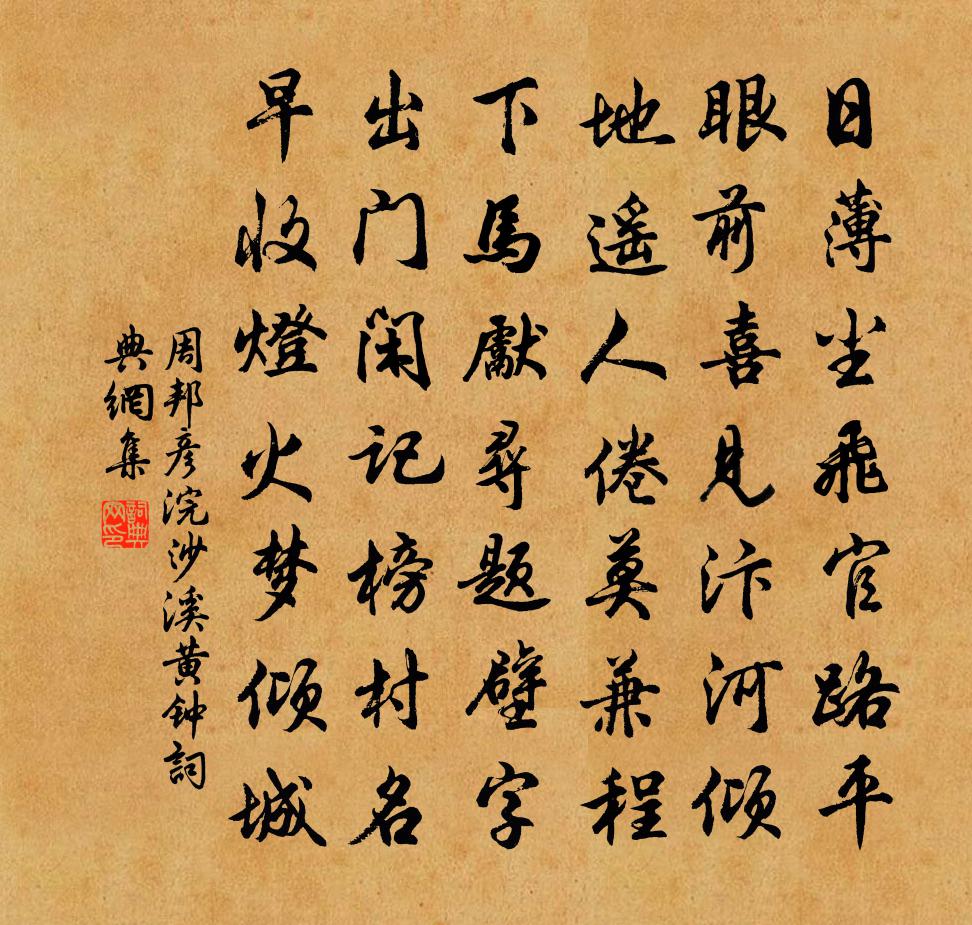 日薄尘飛官路平
眼前喜見汴河倾
地遥人倦莫兼程
下馬獻尋题壁字
出门闲记榜村名
早收燈火梦倾城
周邦彦浣沙溪黄钟詞
典網集
詞典
网印